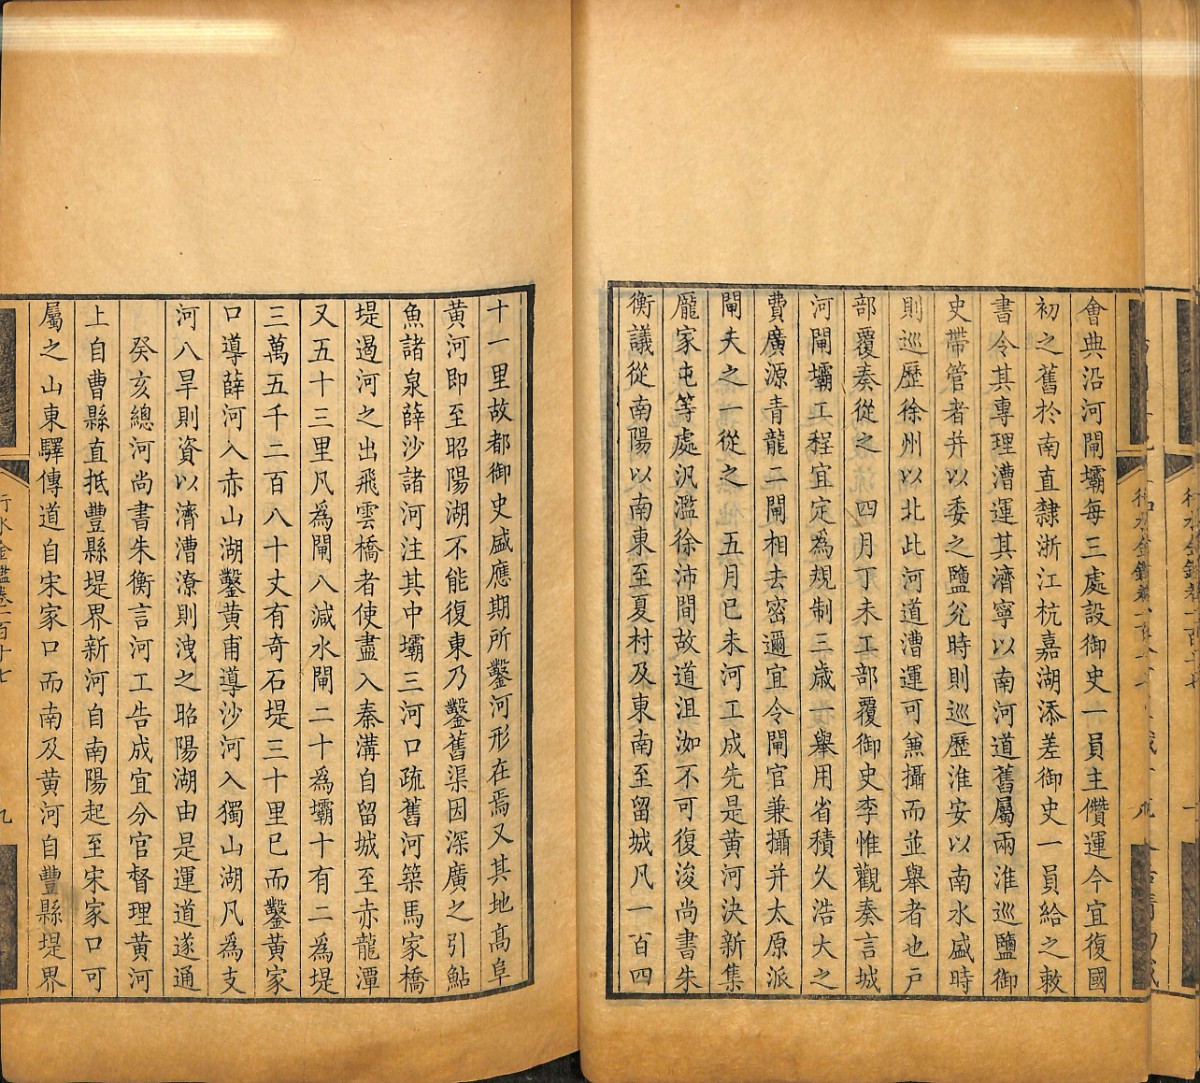 會典沿河閘壩每三處設御史一員主儹運今宜復國
初之舊於南直隸浙江杭嘉湖添差御史一員給之敕
書令其專理漕運其濟寧以南河道舊屬兩淮巡鹽御
史帶管者并以委之鹽兊時則巡歷淮安以南水盛時
則巡歷徐州以北此河道漕運可兼攝而並舉者也戸
部覆奏從之 四月丁未工部覆御史李惟觀奏言城
河閘壩工程宜定為規制三歲一舉用省積久浩大之
費廣源青龍二閘相去密邇宜令閘官兼攝并太原派
閘夫之一從之 五月巳未河工成先是黃河決新集
龎家屯等處汎濫徐沛間故道沮洳不可復浚尚書朱
衡議從南陽以南東至夏村及東南至留城凡一百四
十一里故都御史盛應期所鑿河形在焉又其地高阜
黃河即至昭陽湖不能復東乃鑿舊渠因深廣之引鮎
魚諸泉薛沙諸河注其中壩三河口疏舊河築馬家橋
堤遏河之出飛雲橋者使盡入秦溝自留城至赤龍潭
又五十三里凡爲閘八減水閘二十爲壩十有二為堤
三萬五千二百八十丈有奇石堤三十里巳而鑿黃家
口導薛河入赤山湖鑿黃甫導沙河入獨山湖凡為支
河八旱則資以濟漕潦則洩之昭陽湖由是運道遂通
癸亥總河尚書朱衡言河工告成宜分官督理黃河
上自曹縣直抵豐縣堤界新河自南陽起至宋家口可
屬之山東驛傳道自宋家口而南及黃河自豐縣堤界
行水金鑑卷一百十七
九